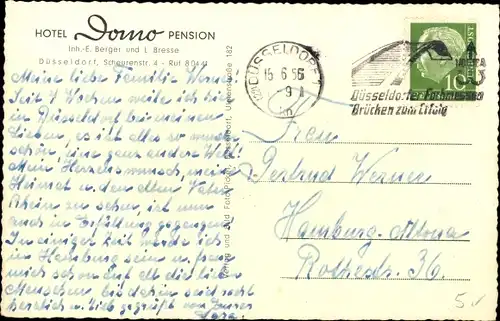 HOTEL Domo PENSION
Inh.: E. Berger und L. Bresse
Düsseldorf, Scheurenstr. 4 - Ruf 80441
Meine liebe Familie Werner
Seit 7 Wochen weile ich hier
in Düsseldorf bei meinen
Lieben, es ist alles so wunder
schön, eine ganz andere Welt!
Mein Herzenswunsch, meine
Heimat u. den alten Vater
Rhein zu sehen, ist nun
auch in Erfüllung gegangen.
In einiger Zeit würde ich
in Hamburg sein u. freue
mich schon auf alle die lieben
Menschen, bis dahin seid recht
herzlich u. lieb gegrüßt von
Düsseldorf, Ulmenstraße 182
DÜSSELDORF
15.6.56
-9
Düsseldorfer
Brücken zum Erfolg
10
Frau
Gertrud Werner
Hamburg-Altona
Rothestr. 36.